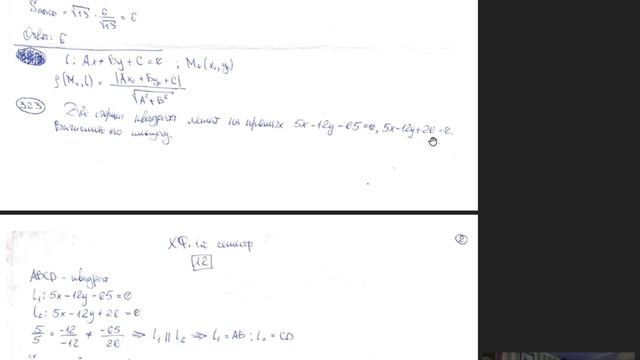 Sпарал = √13 · 6/√13 = 6
Ответ: 6
l: Ax + By + C = 0 ; M₀(x₀, y₀)
ρ(M₀, l) = |Ax₀ + By₀ + C| / √(A² + B²)
323 Две стороны квадрата лежат на прямых 5x - 12y - 65 = 0, 5x - 12y + 26 = 0.
Вычислить его площадь.
ХФ. 1й семестр
2
12
ABCD - квадрат
l₁: 5x - 12y - 65 = 0
l₂: 5x - 12y + 26 = 0
5/5 = -12/-12 ≠ -65/26 ⇒ l₁ ∥ l₂ ⇒ l₁ = AB ; l₂ = CD